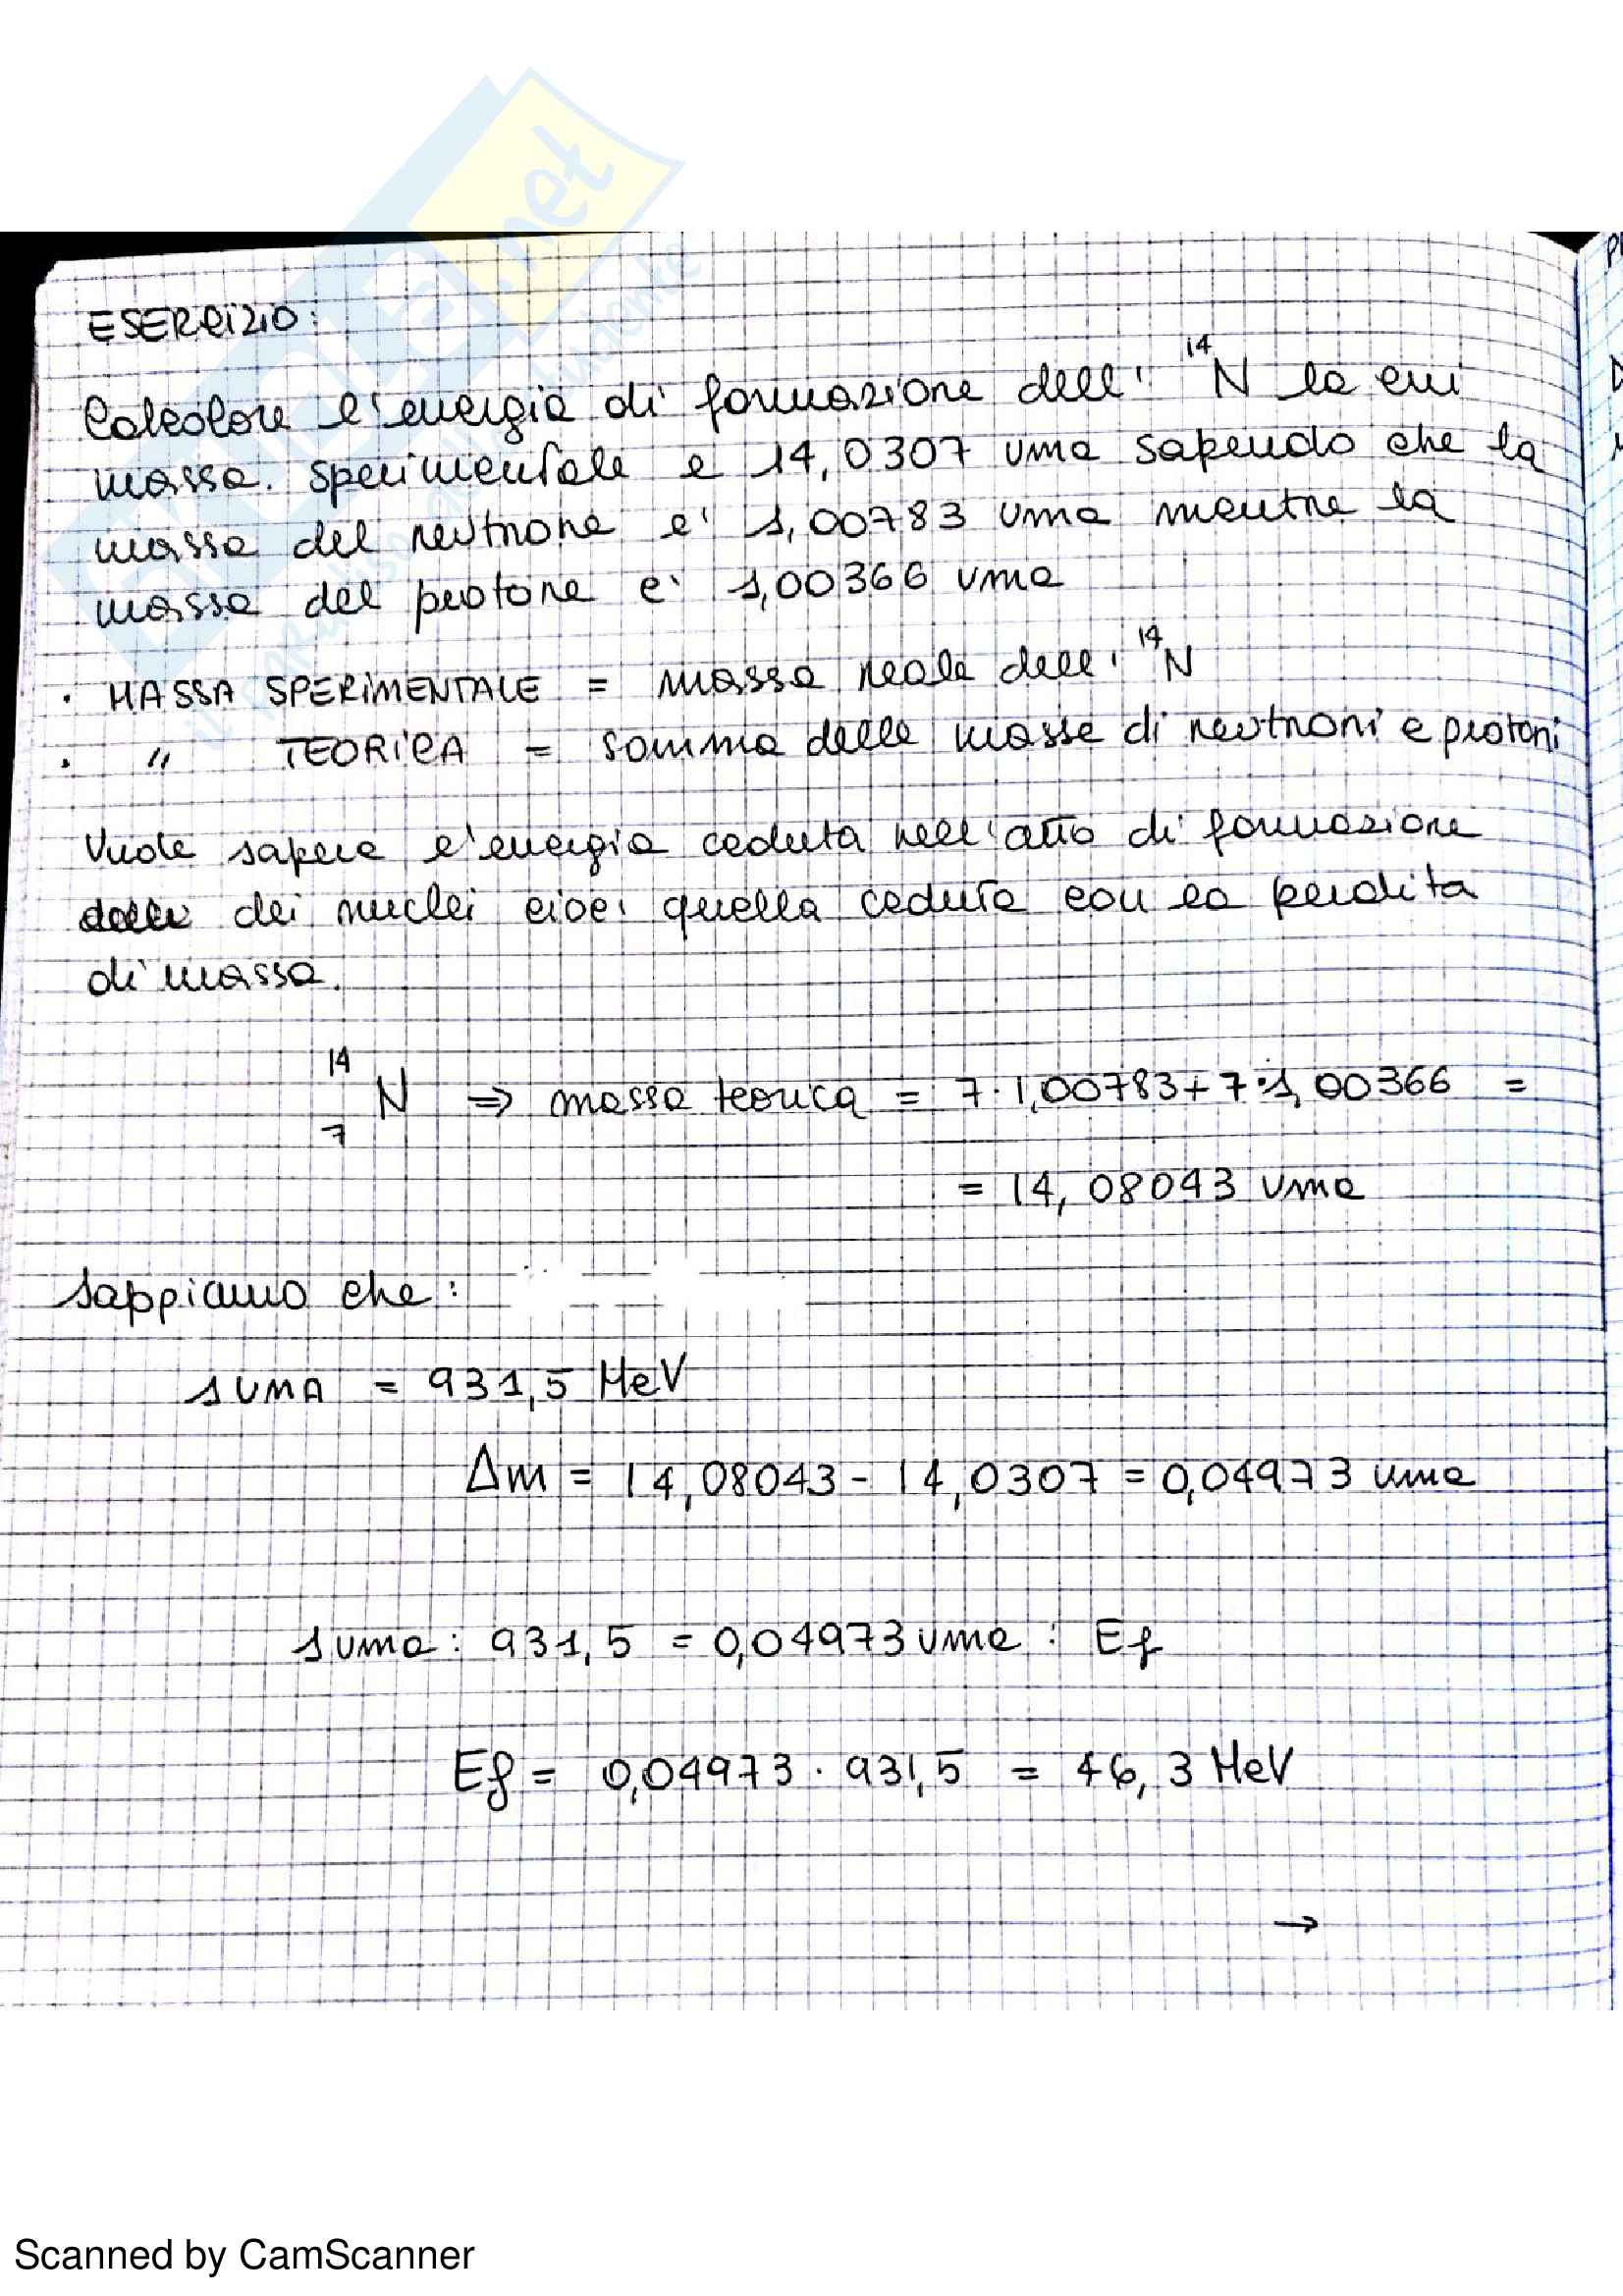 ESERCIZIO:
Calcolare l'energia di formazione dell' ¹⁴N la cui
massa. sperimentale e 14,0307 uma sapendo che la
massa del neutrone e' 1,00783 uma mentre la
massa del protone e' 1,00366 uma
· MASSA SPERIMENTALE = massa reale dell' ¹⁴N
· " TEORICA = somma delle masse di neutroni e protoni
Vuole sapere l'energia ceduta nell'atto di formazione
dei nuclei cioe' quella ceduta con la perdita
di massa.
¹⁴₇N ⇒ massa teorica = 7·1,00783+7·1,00366 =
= 14,08043 uma
Sappiamo che:
1 UMA = 931,5 MeV
Δm = 14,08043 - 14,0307 = 0,04973 uma
1 uma : 931,5 = 0,04973 uma : Ef
Ef = 0,04973 · 931,5 = 46,3 MeV
→
Scanned by CamScanner